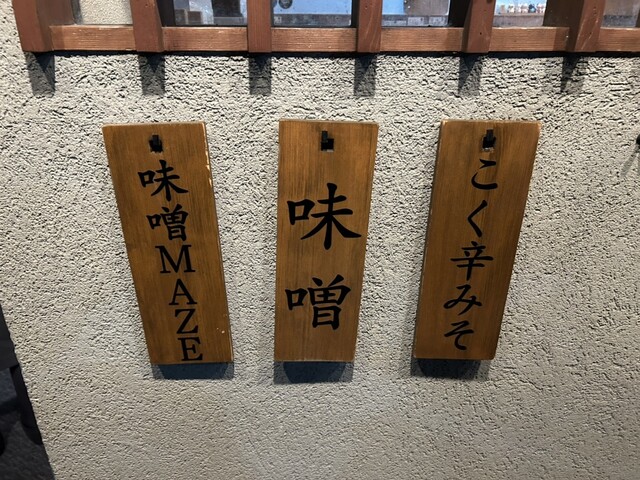 味噌MAZE
味噌
こく辛みそ